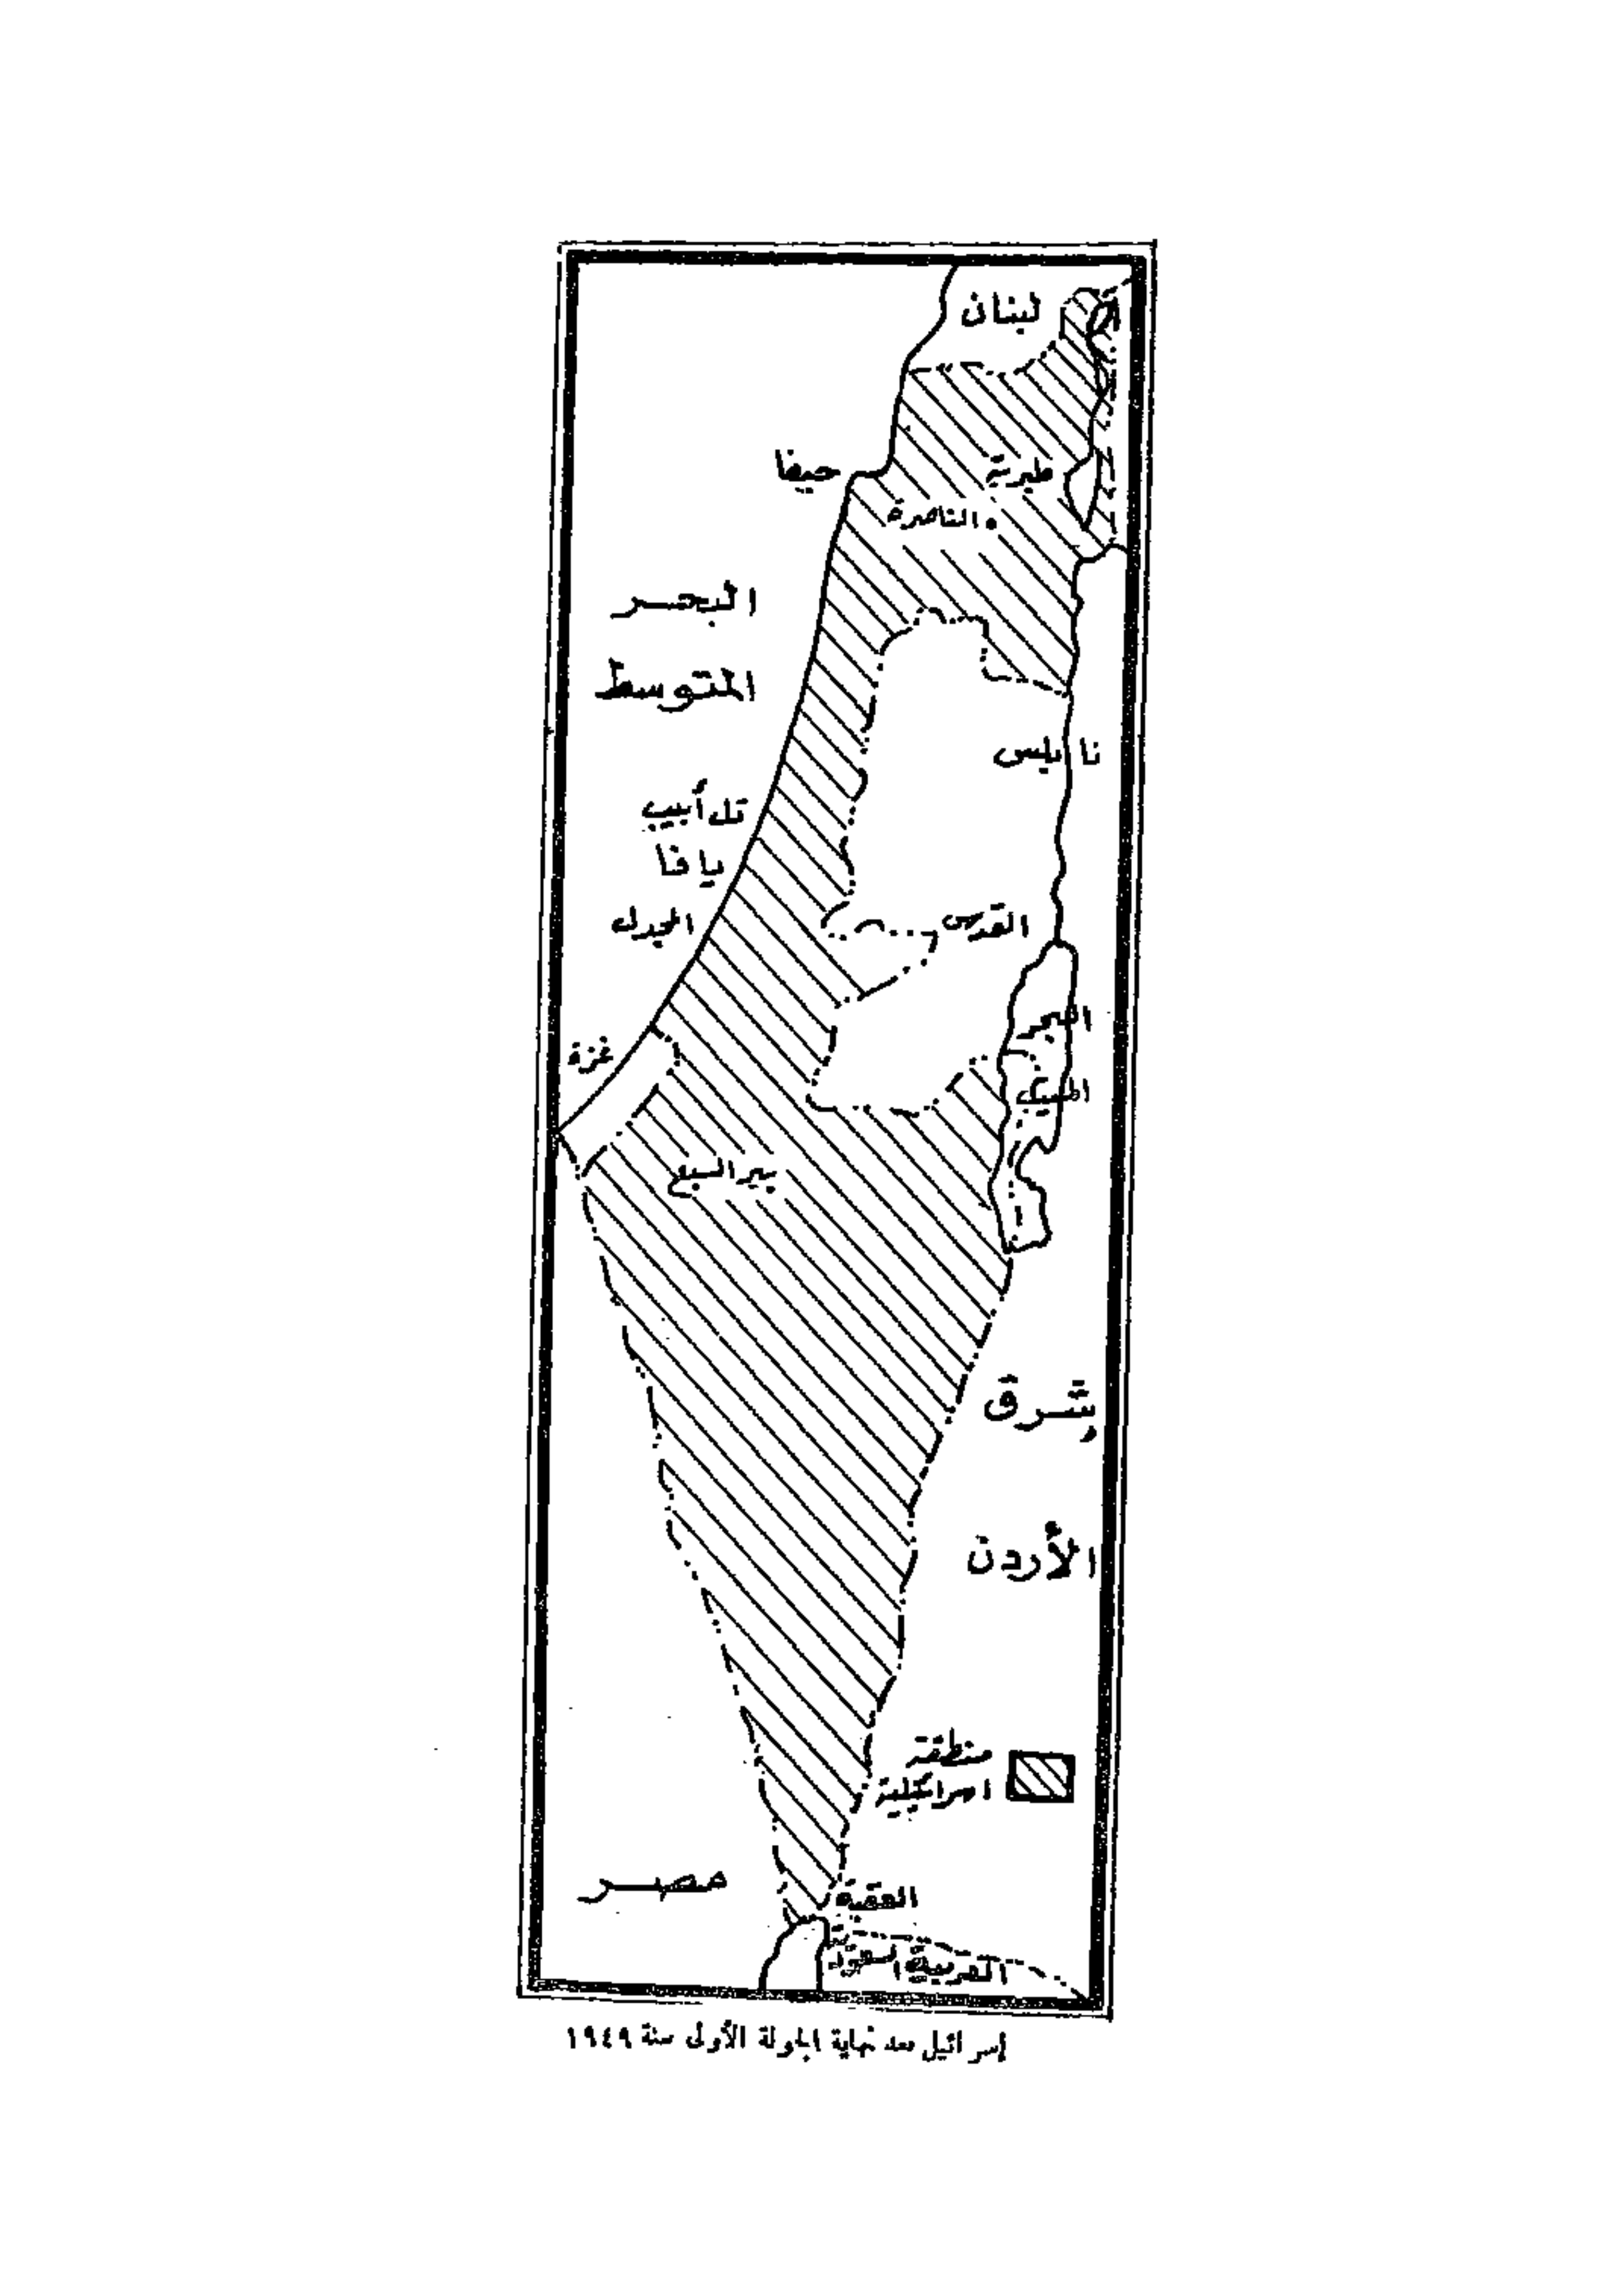 لبنان
حيفا
طبرية
الناصرة
البحر
المتوسط
نابلس
تل أبيب
يافا
المجدل
القدس
البحر
الميت
غزة
بير السبع
شرق
الأردن
منطقة
اسرائيلية
مصر
العقبة
العربية السعودية
إسرائيل بعد نهاية الجولة الأولى سنة ١٩٤٩